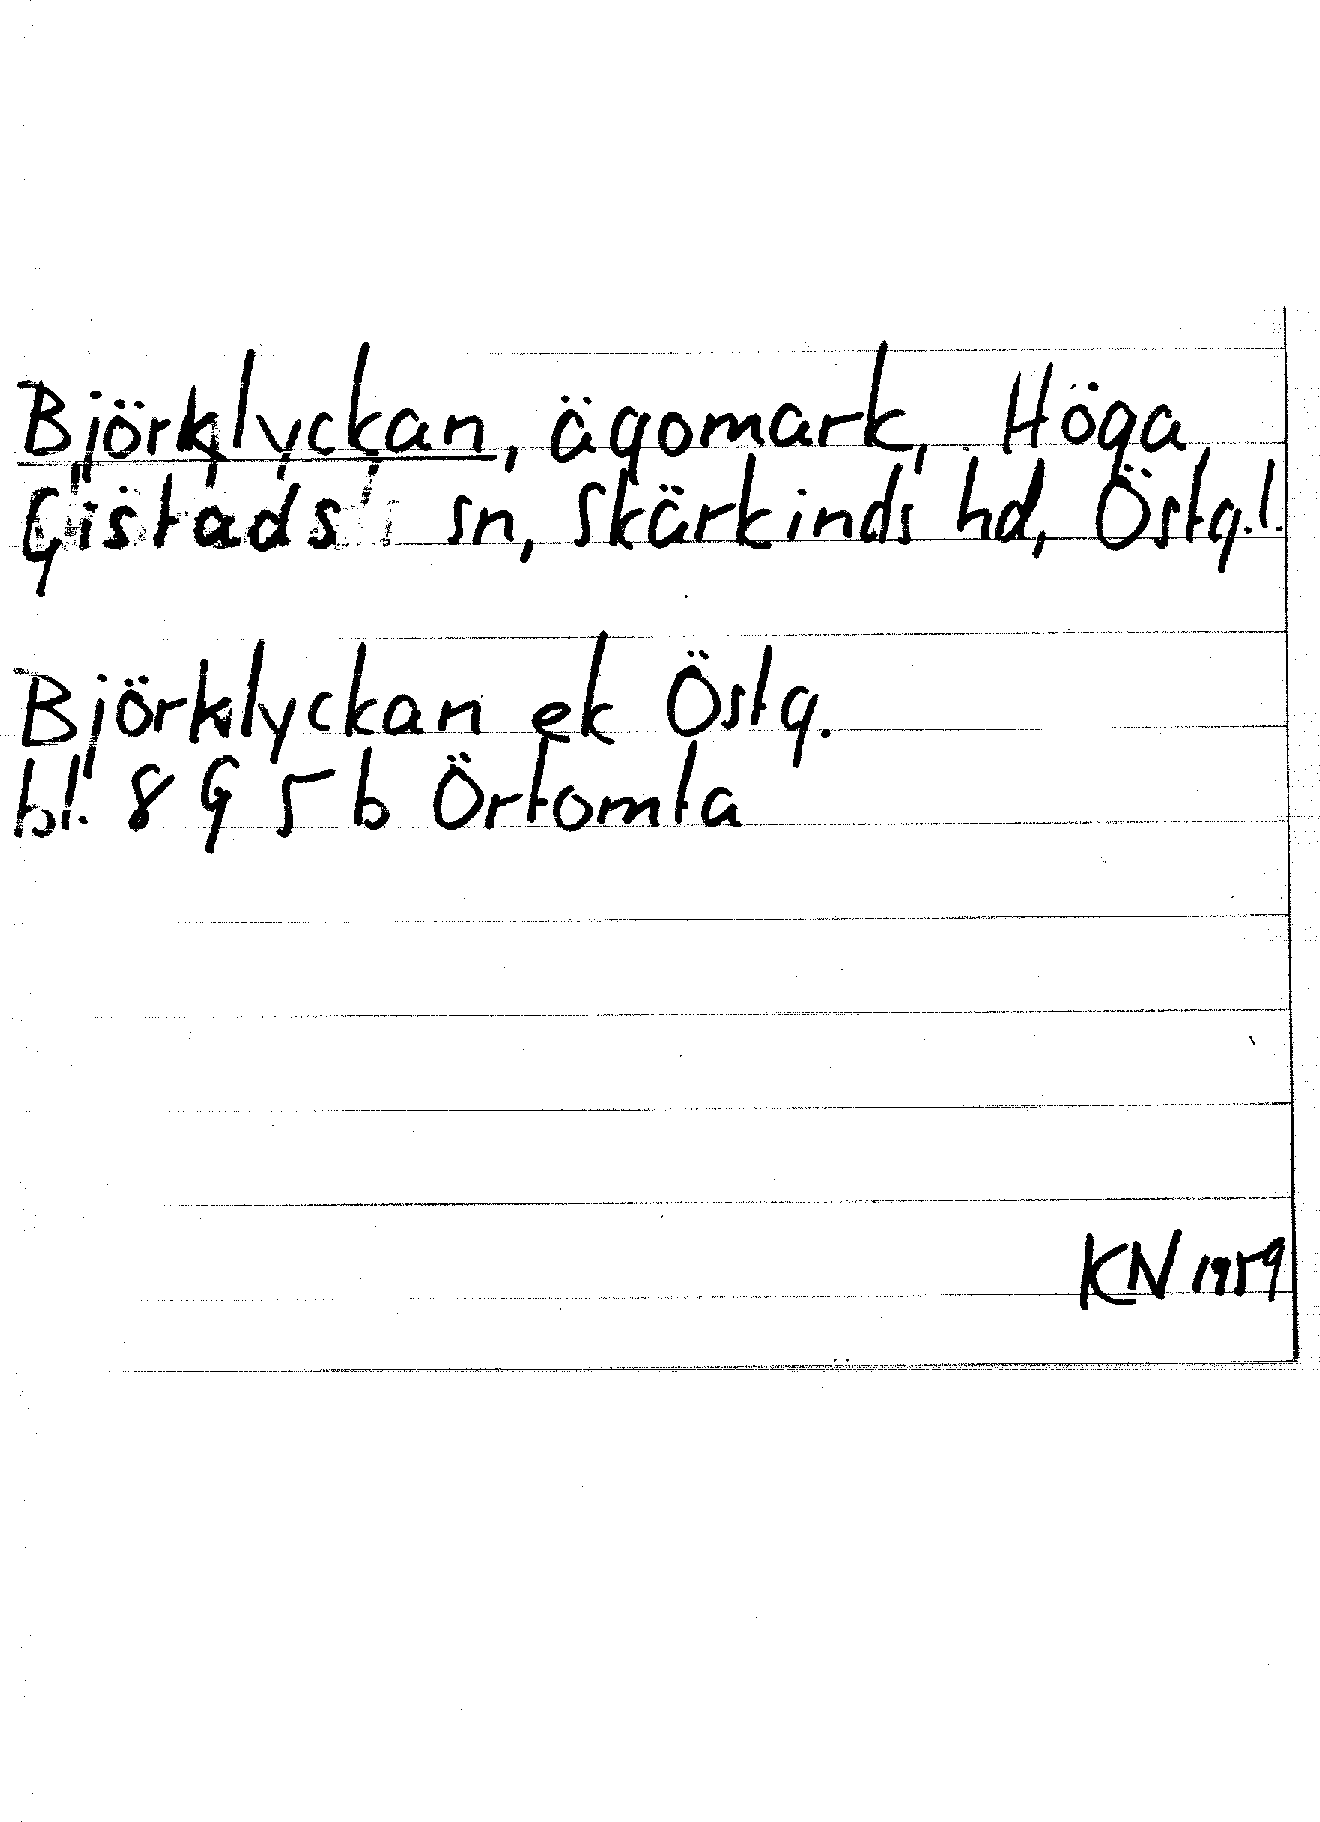 Björklyckan, ägomark, Höga
Gistads sn, Skärkinds hd, Östg.l.
Björklyckan ek Östg.
bl. 8 G 5 b Örtomta
KN 1959